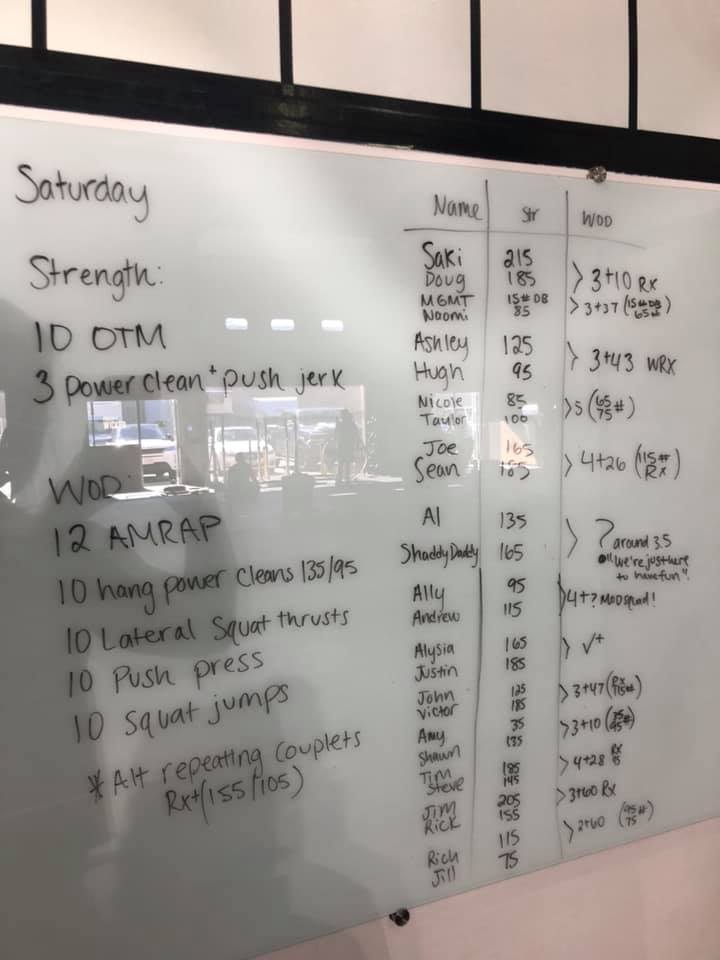 Saturday
Strength:
10 OTM
3 power clean + push jerk
WOD:
12 AMRAP
10 hang power cleans 135/95
10 Lateral Squat thrusts
10 Push press
10 squat jumps
* Alt repeating couplets
Rx+(155/105)
Name Str WOD
Saki 215
Doug 185
> 3+10 Rx
MGMT 15# DB
Naomi 85
> 3+37 (15# DB
65#)
Ashley 125
Hugh 95
> 3+43 WRX
Nicole 85
Taylor 100
>5 (65
75#)
Joe 165
Sean 185
> 4+26 (115#
Rx)
Al 135
Shaddy Daddy 165
> ? around 3.5
"We're just here
to have fun".
Ally 95
Andrew 115
>4+? MODsquad!
Alysia 165
Justin 185
> √+
John 125
Victor 185
> 3+47 (Rx
115#)
Amy 35
Shawn 135
>3+10 (35
95#)
Tim 185
Steve 145
> 4+28 Rx
Jim 205
Rick 155
>3+60 Rx
Rich 115
Jill 75
>2+60 (95#
75)